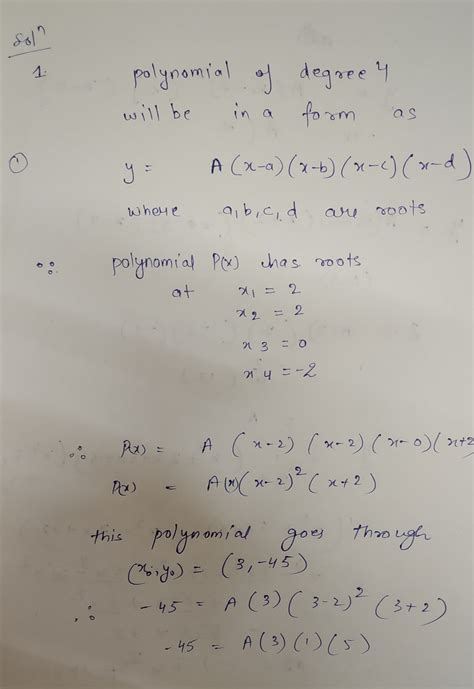 Solⁿ
1. polynomial of degree 4
will be in a form as
① y = A(x-a)(x-b)(x-c)(x-d)
where a,b,c,d are roots
∴ polynomial P(x) has roots
at x₁ = 2
x₂ = 2
x₃ = 0
x₄ = -2
∴ P(x) = A (x-2) (x-2) (x-0) (x+2
P(x) = A(x)(x-2)² (x+2)
this polynomial goes through
(x₀,y₀) = (3,-45)
∴ -45 = A(3) (3-2)² (3+2)
-45 = A(3)(1)(5)